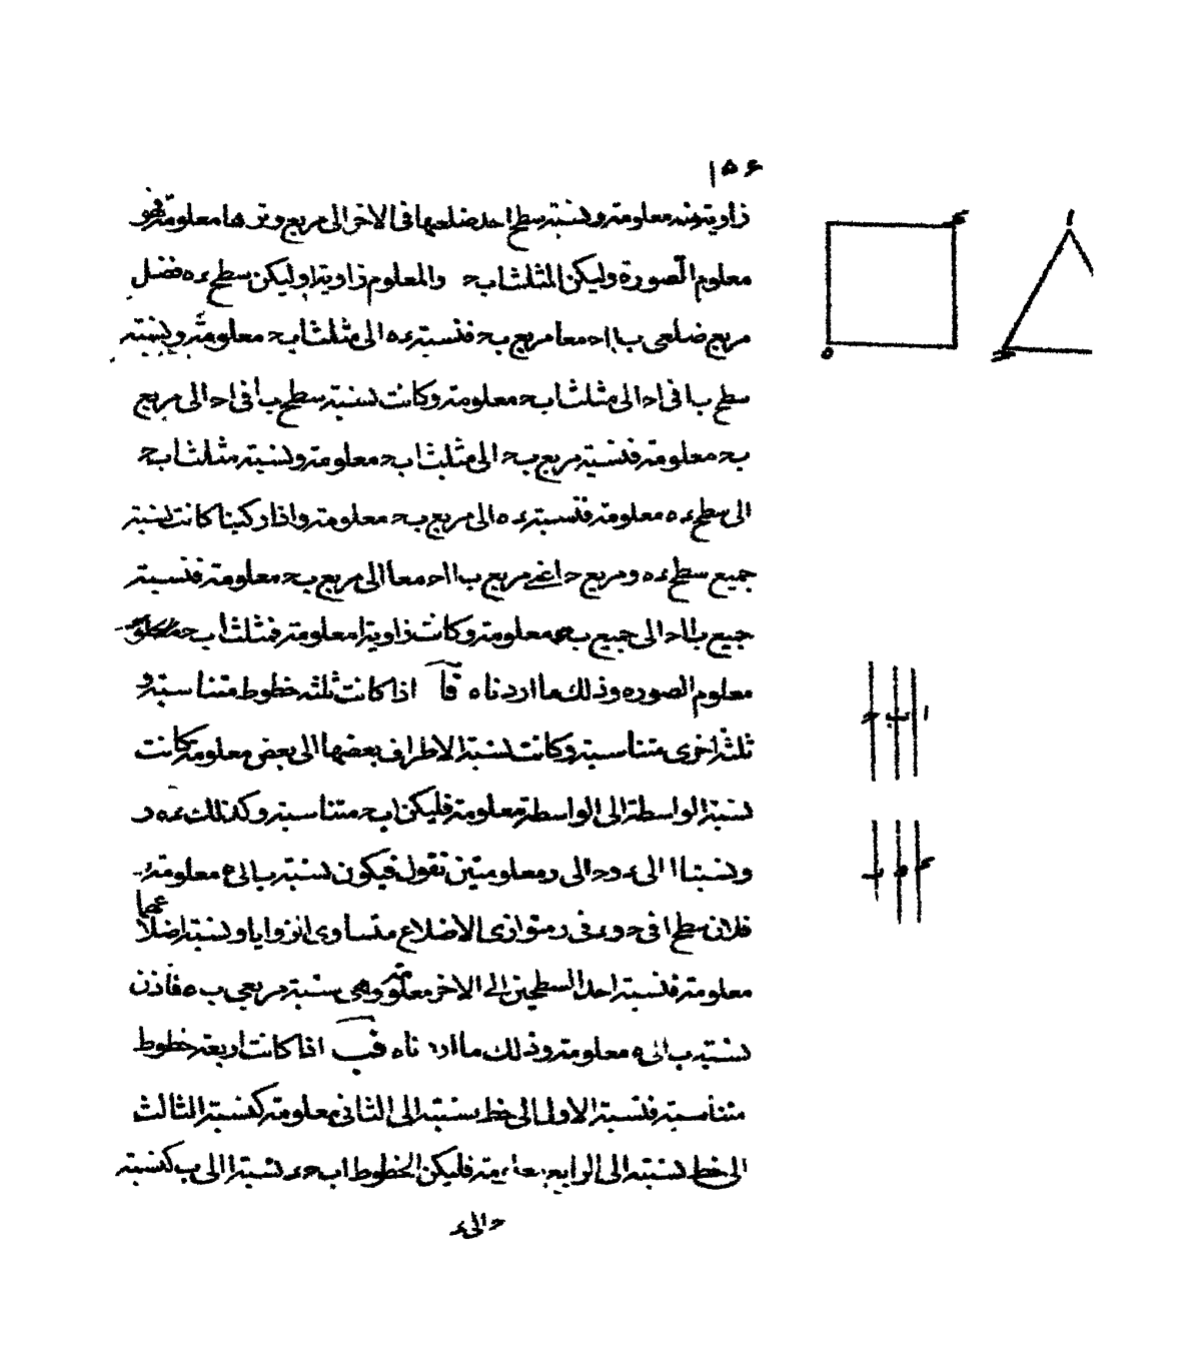 ١٥۶
زاوية منه معلومة ونسبة سطح احد ضلعيها فى الاخر الى مربع وترها معلومة فهو
معلوم الصورة وليكن المثلث ابح والمعلوم زاوية ا وليكن سطح ءه فضل
مربع ضلعى ب ا احـ معا مربع بح فنسبة ءه الى مثلث ابح معلومة ونسبة
سطح ب ا فى احـ الى مثلث ابح معلومة وكانت نسبة سطح ب ا فى احـ الى مربع
بح معلومة فنسبة مربع بح الى مثلث ابح معلومة ونسبة مثلث ابح
الى سطح ءه معلومة فنسبة ءه الى مربع بح معلومة واذا ركبنا كانت نسبة
جميع سطح ءه ومربع حـ اعنى مربع ب ا احـ معا الى مربع بح معلومة فنسبة
جميع ب ا احـ الى جميع بح معلومة وكانت زاوية ا معلومة فمثلث ابح
معلوم الصوره وذلك ما اردناه قا اذا كانت ثلثه خطوط متناسبة و
ثلثة اخرى متناسبة وكانت نسبة الاطراف بعضها الى بعض معلومة كانت
نسبة الواسطة الى الواسطة معلومة فليكن ابح متناسبة وكذلك ءه ر
ونسبتا ا الى ء وحـ الى ر معلومتين نقول فيكون نسبة ب الى ه معلومة
فلان سطح ا فى حـ وء فى ر متوازى الاضلاع متساوى الزوايا ونسبة اضلاعهما
معلومة فنسبة احد السطحين الى الاخر معلومة وهى نسبة مربعى ب ه فاذن
نسبة ب الى ه معلومة وذلك ما اردناه قب اذا كانت اربعة خطوط
متناسبة فنسبة الاول الى خط نسبته الى الثانى معلومة كنسبة الثالث
الى خط نسبته الى الرابع معلومة فليكن الخطوط ابحء نسبة ا الى ب كنسبة
حـ الى ء
ء
ا
ه
حـ
ا ب حـ
ء ه ر